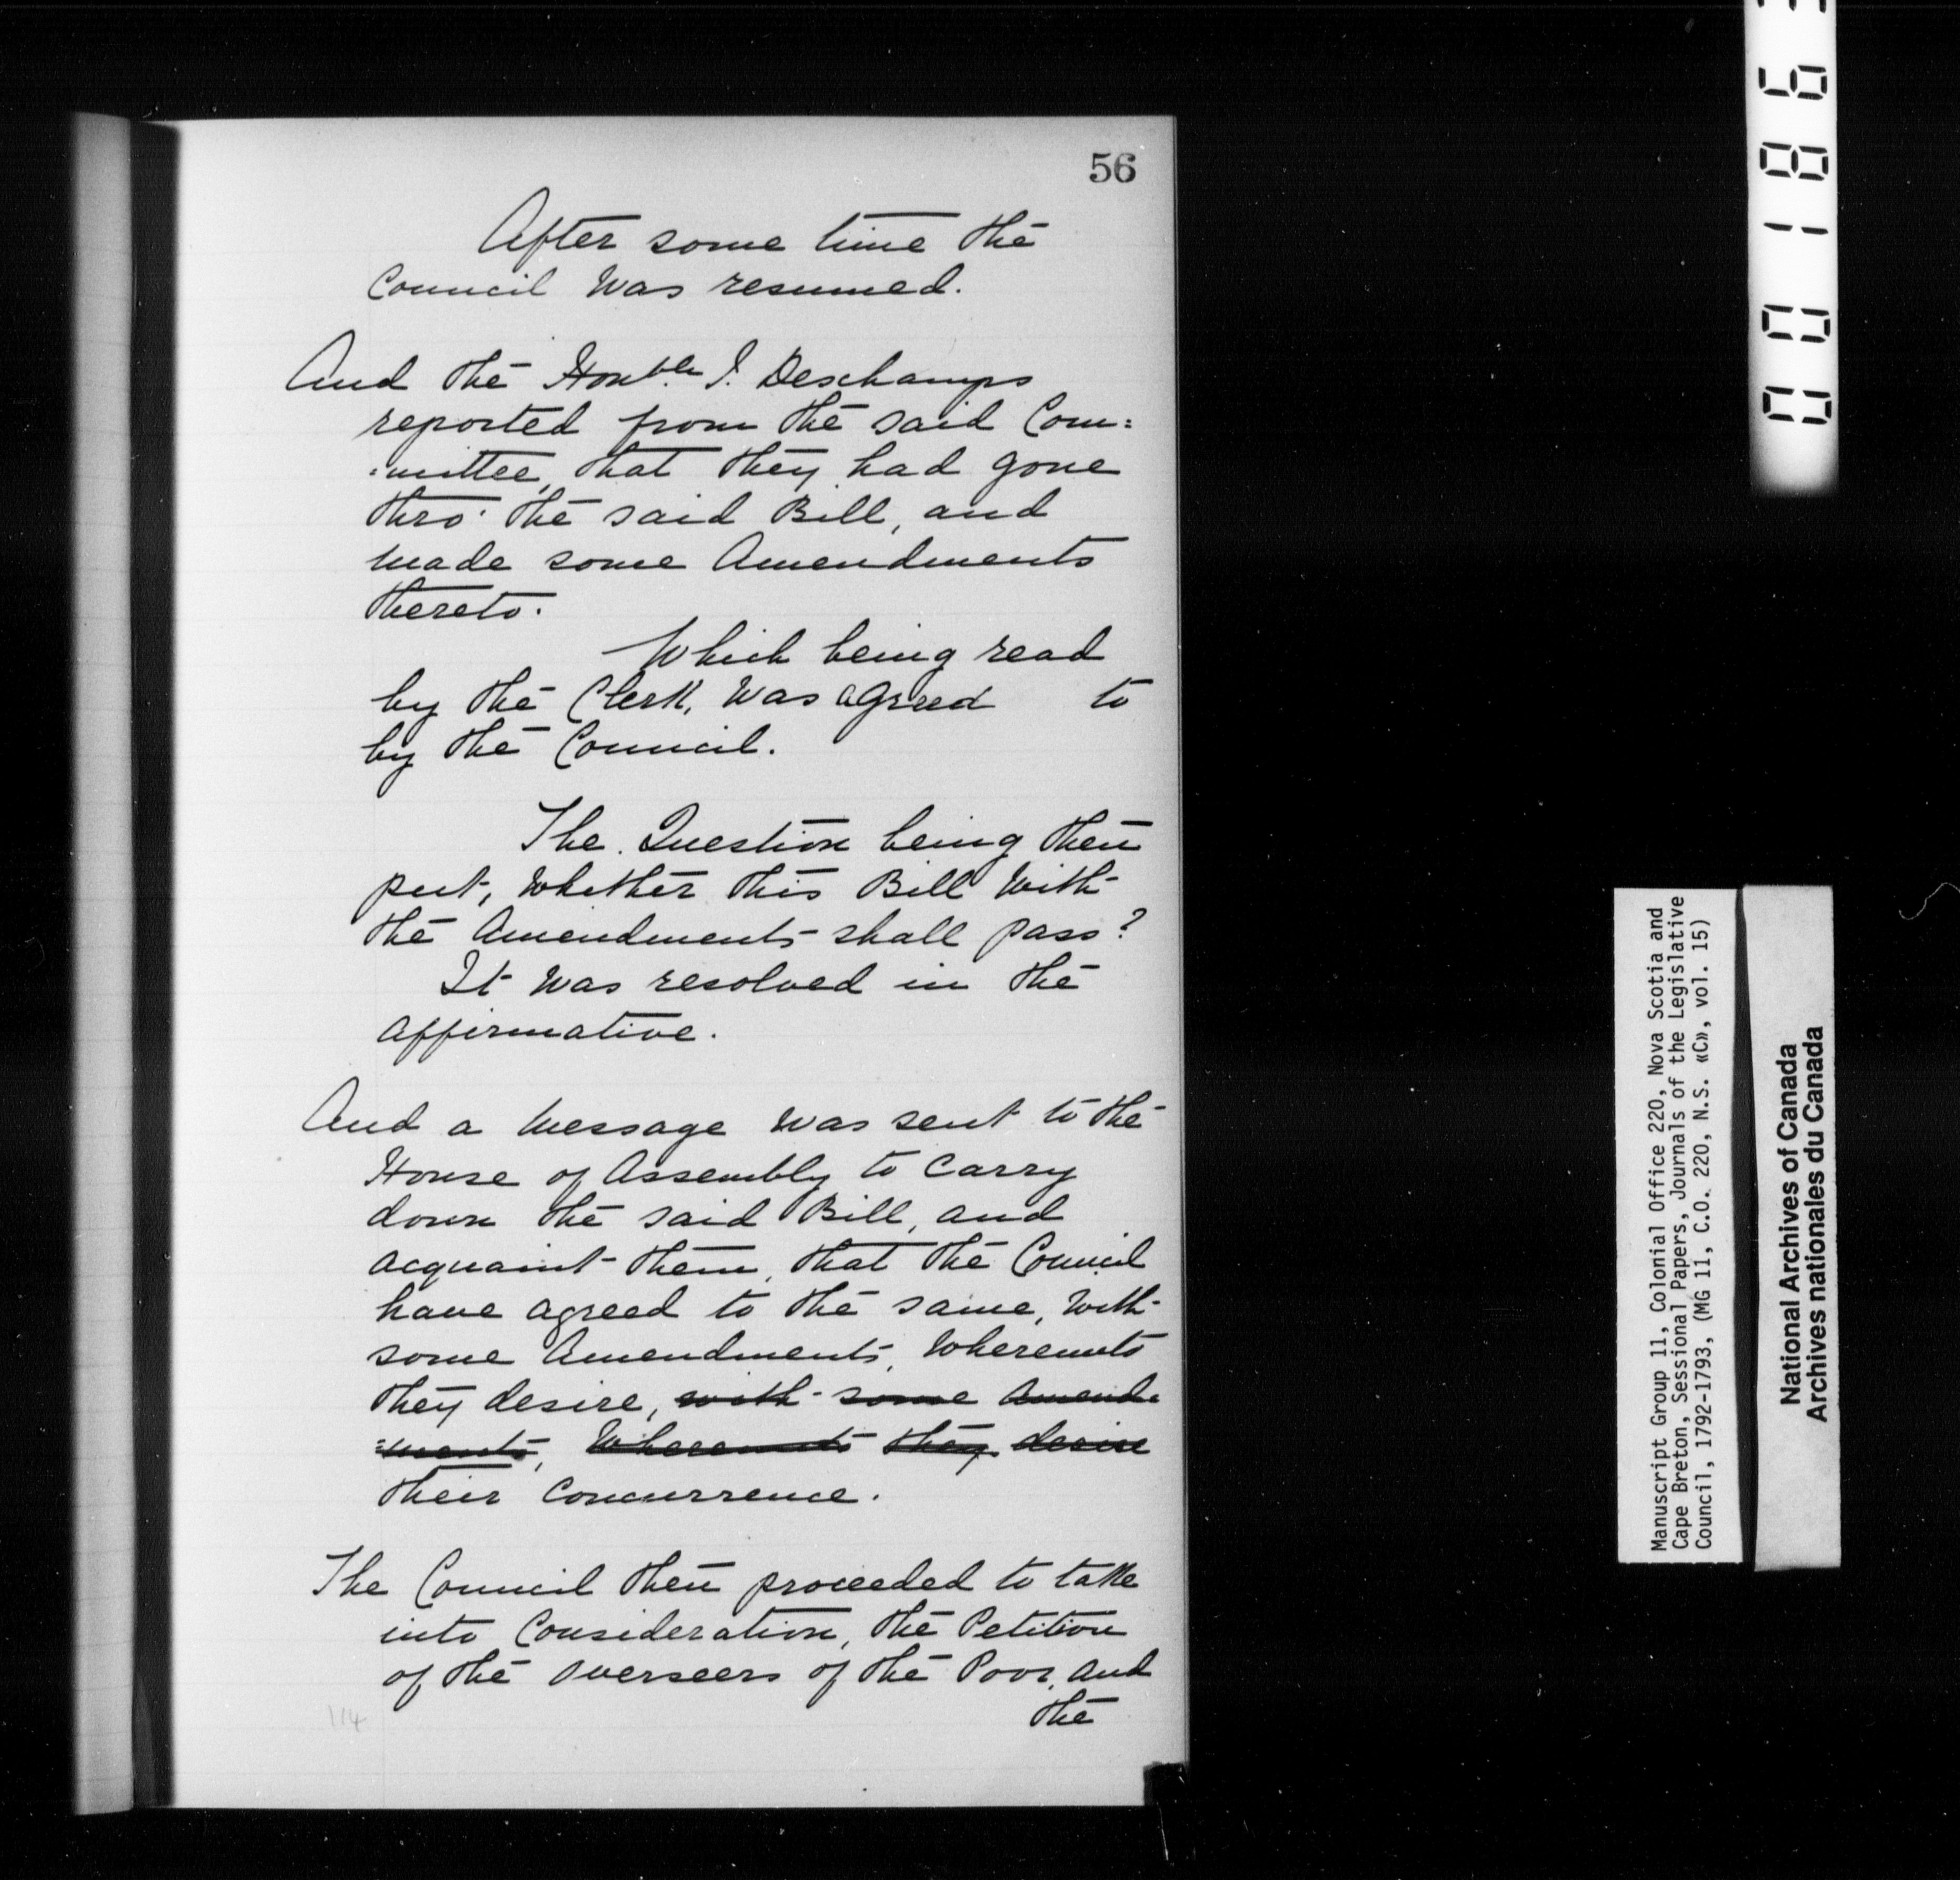 56
After some time the
Council was resumed.
And the Honble. I. Deschamps
reported from the said Com:
:mittee, that they had gone
thro' the said Bill, and
made some Amendments
thereto.
Which being read
by the Clerk, was agreed to
by the Council.
The Question being then
put, whether this Bill with
the Amendments shall pass?
It was resolved in the
affirmative.
And a message was sent to the
House of Assembly to carry
down the said Bill, and
acquaint them, that the Council
have agreed to the same, with
some Amendments, whereunto
they desire, with some Amend:
:ments, whereunto they desire
their concurrence.
The Council then proceeded to take
into Consideration, the Petition
of the Overseers of the Poor, and
the
114
Manuscript Group 11, Colonial Office 220, Nova Scotia and
Cape Breton, Sessional Papers, Journals of the Legislative
Council, 1792-1793, (MG 11, C.O. 220, N.S. «C», vol. 15)
National Archives of Canada
Archives nationales du Canada